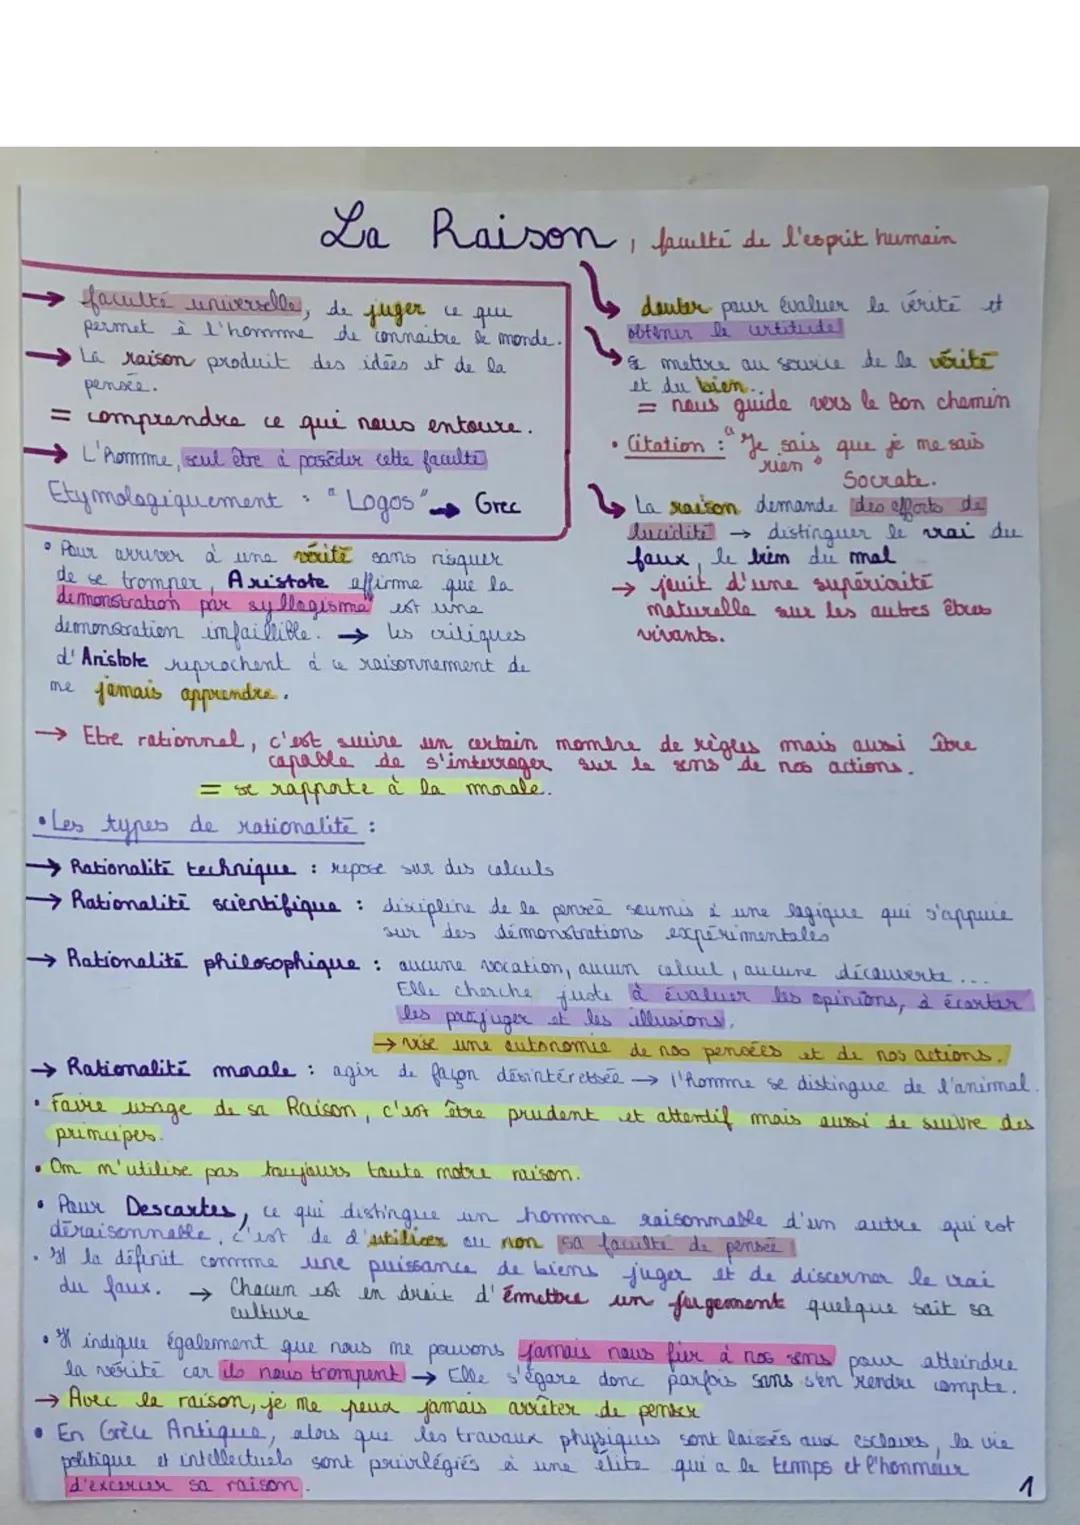 La Raison, faculté de l'esprit humain
→ faculté universelle, de juger ce qui
permet à l'homme de connaitre le monde.
→ La raison produit des idées et de la
pensée.
= comprendre ce qui nous entoure.
→ L'homme, seul être à posséder cette faculté
Etymologiquement : "Logos" → Grec
• Pour arriver à une vérité sans risquer
de se tromper, Aristote affirme que la
demonstration par syllogisme est une
demonstration infaillible. → les critiques
d'Aristote reprochent à ce raisonnement de
ne jamais apprendre.
douter pour évaluer la vérité et
obtenir la certitude
se mettre au service de la vérité
et du bien...
= nous guide vers le Bon chemin
• Citation : "Je sais que je ne sais
rien"
Socrate.
La raison demande des efforts de
lucidité → distinguer le vrai du
faux, le bien du mal
→ jouit d'une supériorité
naturelle sur les autres êtres
vivants.
→ Etre rationnel, c'est suivre un certain nombre de règles mais aussi être
capable de s'interroger sur le sens de nos actions.
= se rapporte à la morale.
• Les types de rationalité :
→ Rationalité technique : repose sur des calculs
→ Rationalité scientifique : discipline de la pensée soumis à une logique qui s'appuie
sur des démonstrations expérimentales
→ Rationalité philosophique : aucune vocation, aucun calcul, aucune découverte...
Elle cherche juste à évaluer les opinions, à écarter
les prejuger et les illusions.
→ vise une autonomie de nos pensées et de nos actions.
→ Rationalité morale : agir de façon désintéressée → l'homme se distingue de l'animal.
• Faire usage de sa Raison, c'est être prudent et attentif mais aussi de suivre des
principes.
• On n'utilise pas toujours toute notre raison.
• Pour Descartes, ce qui distingue un homme raisonnable d'un autre qui est
déraisonnable, c'est de d'utiliser ou non sa faculté de pensée
• Il la définit comme une puissance de biens juger et de discerner le vrai
du faux. → Chacun est en droit d'émettre un jugement quelque soit sa
culture
• Il indique également que nous ne pouvons jamais nous fier à nos sens pour atteindre
la vérité car ils nous trompent → Elle s'égare donc parfois sans s'en rendre compte.
→ Avec la raison, je ne peux jamais arrêter de penser
• En Grèce Antique, alors que les travaux physiques sont laissés aux esclaves, la vie
politique et intellectuels sont privilégiés à une élite qui a le temps et l'honneur
d'excercer sa raison.
1